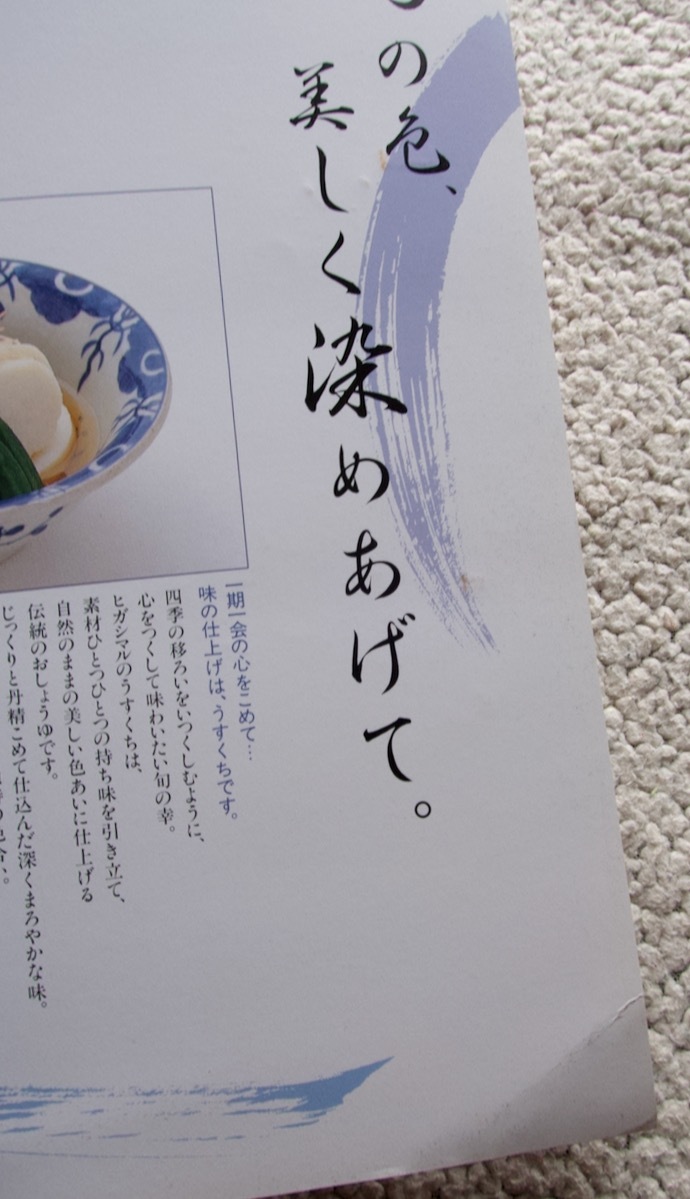 の色、
美しく染めあげて。
一期一会の心をこめて…
味の仕上げは、うすくちです。
四季の移ろいをいつくしむように、
心をつくして味わいたい旬の幸。
ヒガシマルのうすくちは、
素材ひとつひとつの持ち味を引き立て、
自然のままの美しい色あいに仕上げる
伝統のおしょうゆです。
じっくりと丹精こめて仕込んだ深くまろやかな味。